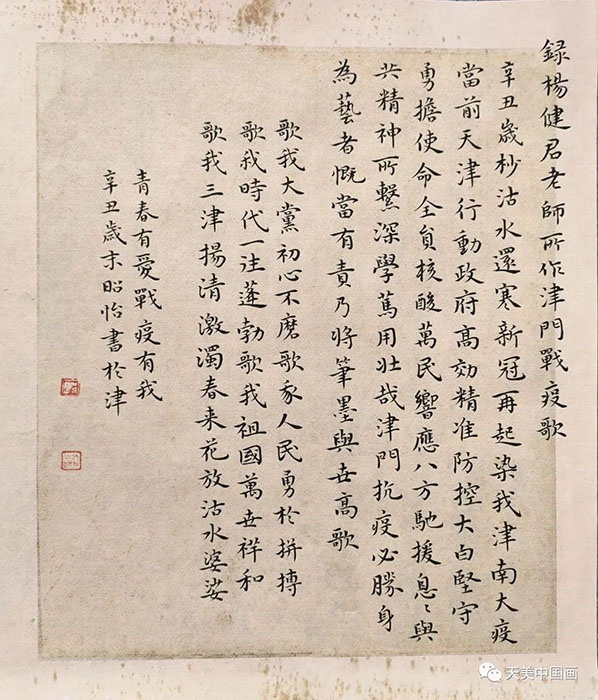 録楊健君老師所作津門戰疫歌
辛丑歲杪沽水還寒新冠再起染我津南大疫
當前天津行動政府高効精准防控大白堅守
勇擔使命全員核酸萬民響應八方馳援息〻與
共精神所繫深學篤用壯哉津門抗疫必勝身
為藝者慨當有責乃將筆墨與世高歌
歌我大黨初心不磨歌我人民勇於拼搏
歌我時代一往蓬勃歌我祖國萬世祥和
歌我三津揚清激濁春来花放沽水婆娑
青春有愛戰疫有我
辛丑歲末昭怡書於津
天美中国画